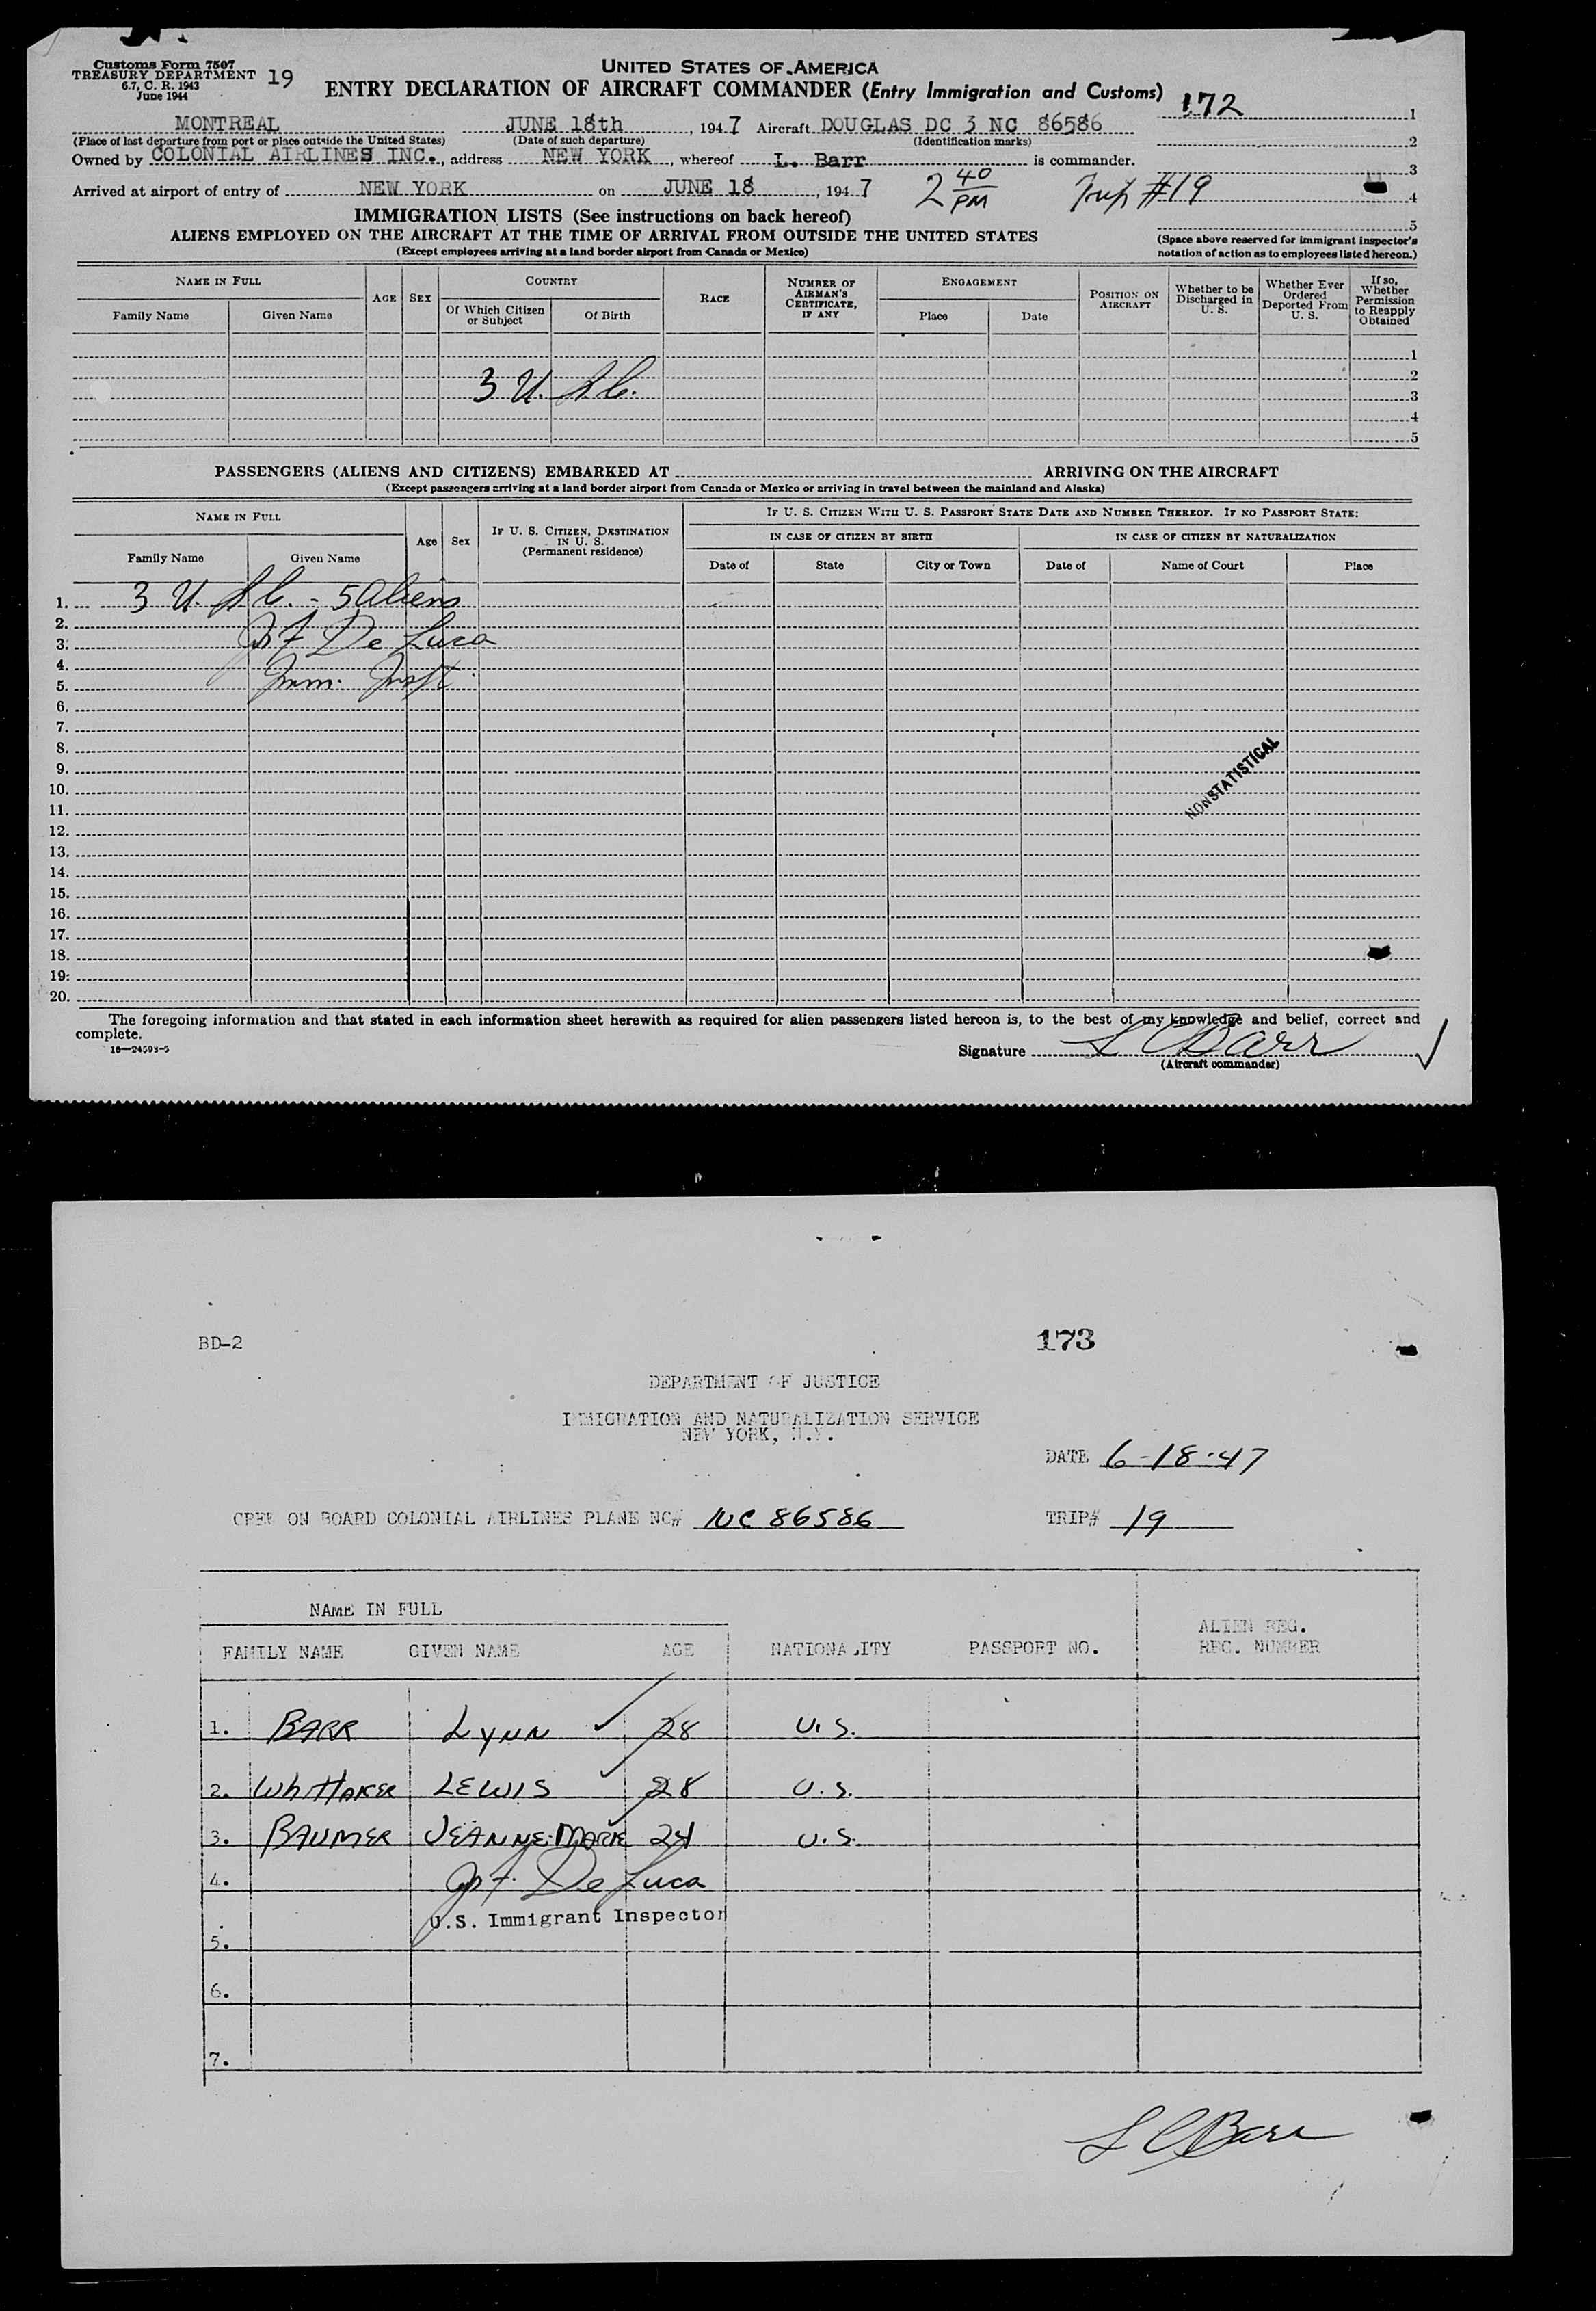 Customs Form 7507
TREASURY DEPARTMENT
6.7, C. R. 1943
June 1944
19
UNITED STATES OF AMERICA
ENTRY DECLARATION OF AIRCRAFT COMMANDER (Entry Immigration and Customs)
172
1
MONTREAL JUNE 18th, 1947 Aircraft DOUGLAS DC 3 NC 86586
(Place of last departure from port or place outside the United States) (Date of such departure) (Identification marks)
2
Owned by COLONIAL AIRLINES INC., address NEW YORK, whereof L. Barr is commander.
3
Arrived at airport of entry of NEW YORK on JUNE 18, 1947 2 40 PM Trip #19
4
IMMIGRATION LISTS (See instructions on back hereof)
5
ALIENS EMPLOYED ON THE AIRCRAFT AT THE TIME OF ARRIVAL FROM OUTSIDE THE UNITED STATES
(Except employees arriving at a land border airport from Canada or Mexico)
(Space above reserved for immigrant inspector's
notation of action as to employees listed hereon.)
NAME IN FULL
Family Name Given Name
AGE SEX
COUNTRY
Of Which Citizen or Subject Of Birth
RACE
NUMBER OF AIRMAN'S CERTIFICATE, IF ANY
ENGAGEMENT
Place Date
POSITION ON AIRCRAFT
Whether to be Discharged in U. S.
Whether Ever Ordered Deported From U. S.
If so, Whether Permission to Reapply Obtained
1
2
3 U. S. C.
3
4
5
PASSENGERS (ALIENS AND CITIZENS) EMBARKED AT ARRIVING ON THE AIRCRAFT
(Except passengers arriving at a land border airport from Canada or Mexico or arriving in travel between the mainland and Alaska)
NAME IN FULL
Family Name Given Name
Age Sex
IF U. S. CITIZEN, DESTINATION IN U. S.
(Permanent residence)
IF U. S. CITIZEN WITH U. S. PASSPORT STATE DATE AND NUMBER THEREOF. IF NO PASSPORT STATE:
IN CASE OF CITIZEN BY BIRTH IN CASE OF CITIZEN BY NATURALIZATION
Date of State City or Town Date of Name of Court Place
1. 3 U. S. C. - 5 Aliens
2.
3. De Luca
4.
5. Imm. Inspt.
6.
7.
8.
9.
NONSTATISTICAL
10.
11.
12.
13.
14.
15.
16.
17.
18.
19.
20.
The foregoing information and that stated in each information sheet herewith as required for alien passengers listed hereon is, to the best of my knowledge and belief, correct and
complete.
16—24593-5
Signature L C Barr
(Aircraft commander)
BD-2
173
DEPARTMENT OF JUSTICE
IMMIGRATION AND NATURALIZATION SERVICE
NEW YORK, N.Y.
DATE 6-18-47
CREW ON BOARD COLONIAL AIRLINES PLANE NC# NC 86586 TRIP# 19
NAME IN FULL
FAMILY NAME GIVEN NAME AGE NATIONALITY PASSPORT NO. ALIEN REG. REC. NUMBER
1. BARR LYNN 28 U.S.
2. WhITTAKER LEWIS 28 U.S.
3. BAUMER JEANNE-MARIE 24 U.S.
4. De Luca
U.S. Immigrant Inspector
5.
6.
7.
L C Barr